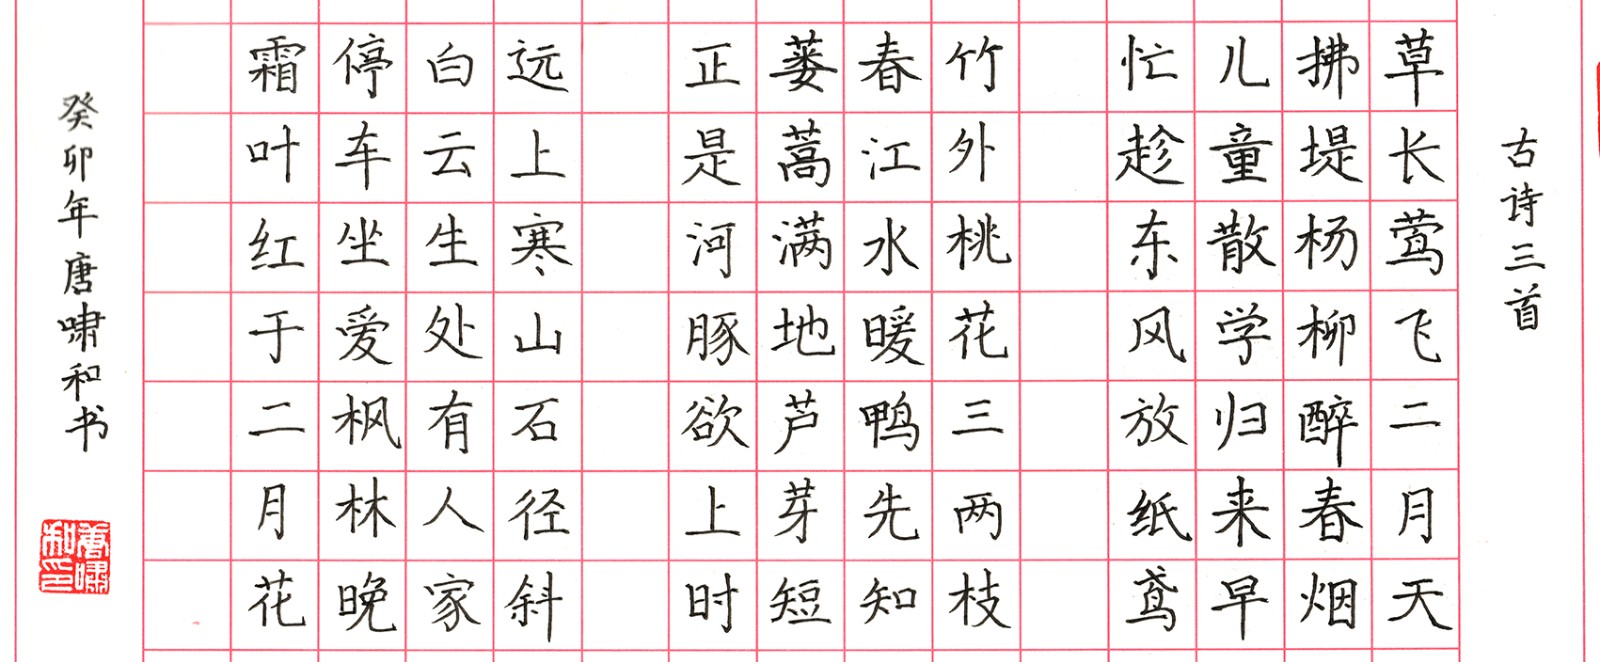 古诗三首
草长莺飞二月天
拂堤杨柳醉春烟
儿童散学归来早
忙趁东风放纸鸢
竹外桃花三两枝
春江水暖鸭先知
蒌蒿满地芦芽短
正是河豚欲上时
远上寒山石径斜
白云生处有人家
停车坐爱枫林晚
霜叶红于二月花
癸卯年唐啸和书
唐啸和印